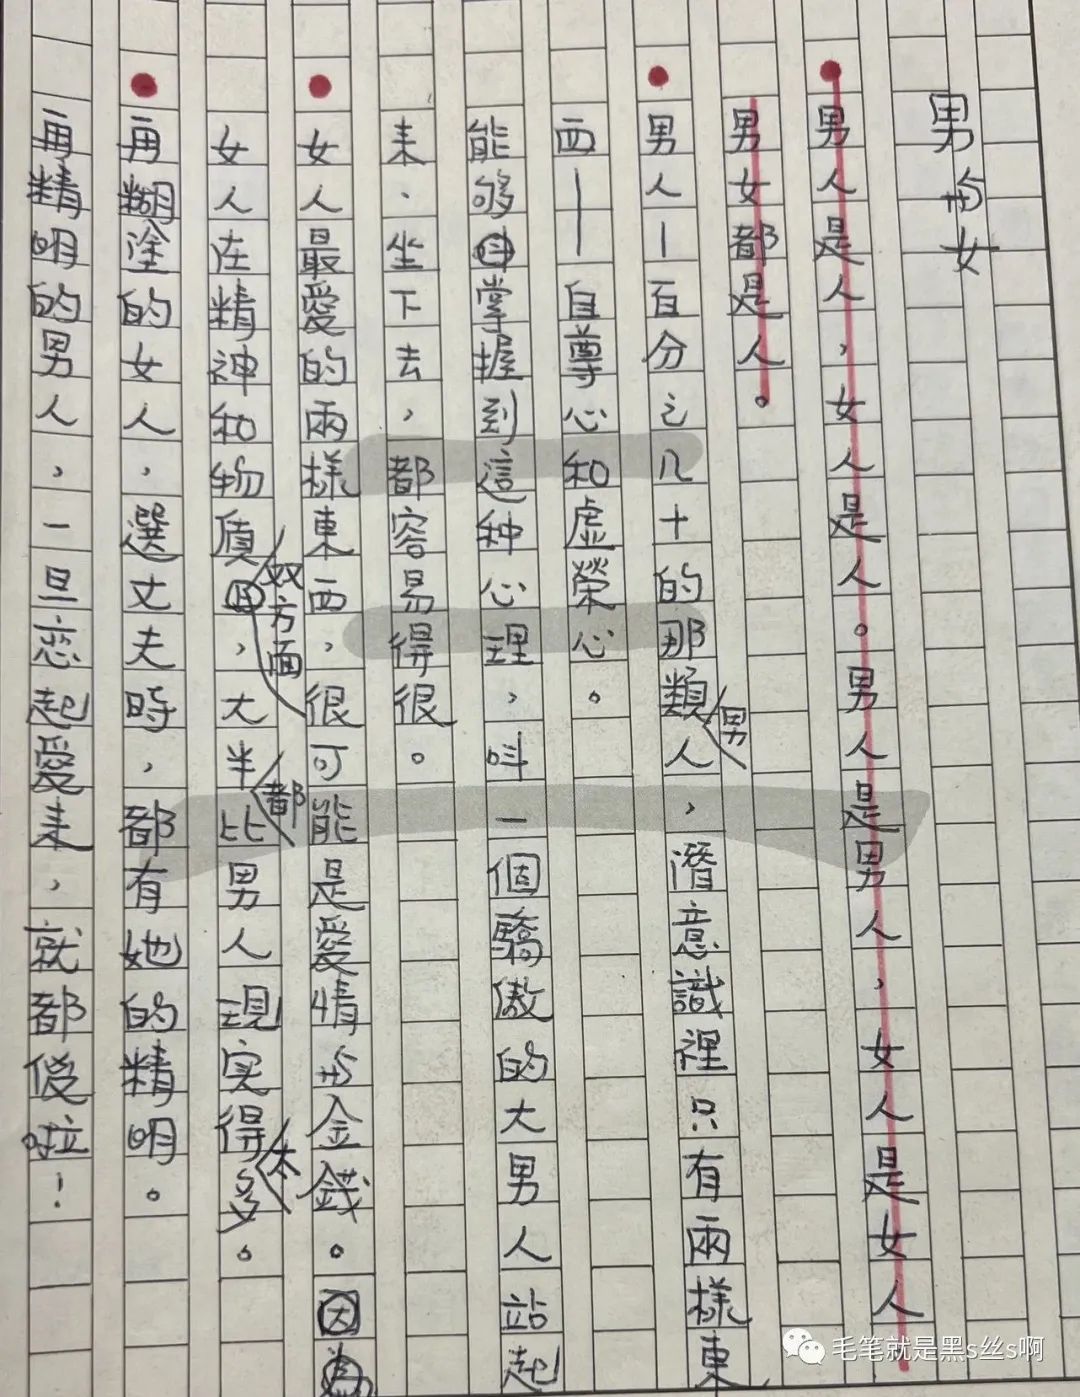 男与女
男人是人，女人是人。男人是男人，女人是女人
男女都是人。
男人—百分之几十的那類男人，潛意識裡只有兩樣東
西——自尊心和虛榮心。
能够掌握到這种心理，叫一個驕傲的大男人站起
来、坐下去，都容易得很。
女人最愛的兩樣東西，很可能是愛情与金錢。
女人在精神和物質
方面，大半都比男人現实得多。
本
再糊塗的女人，選丈夫時，都有她的精明。
再精明的男人，一旦恋起愛来，就都傻啦！
毛笔就是黑s丝s啊